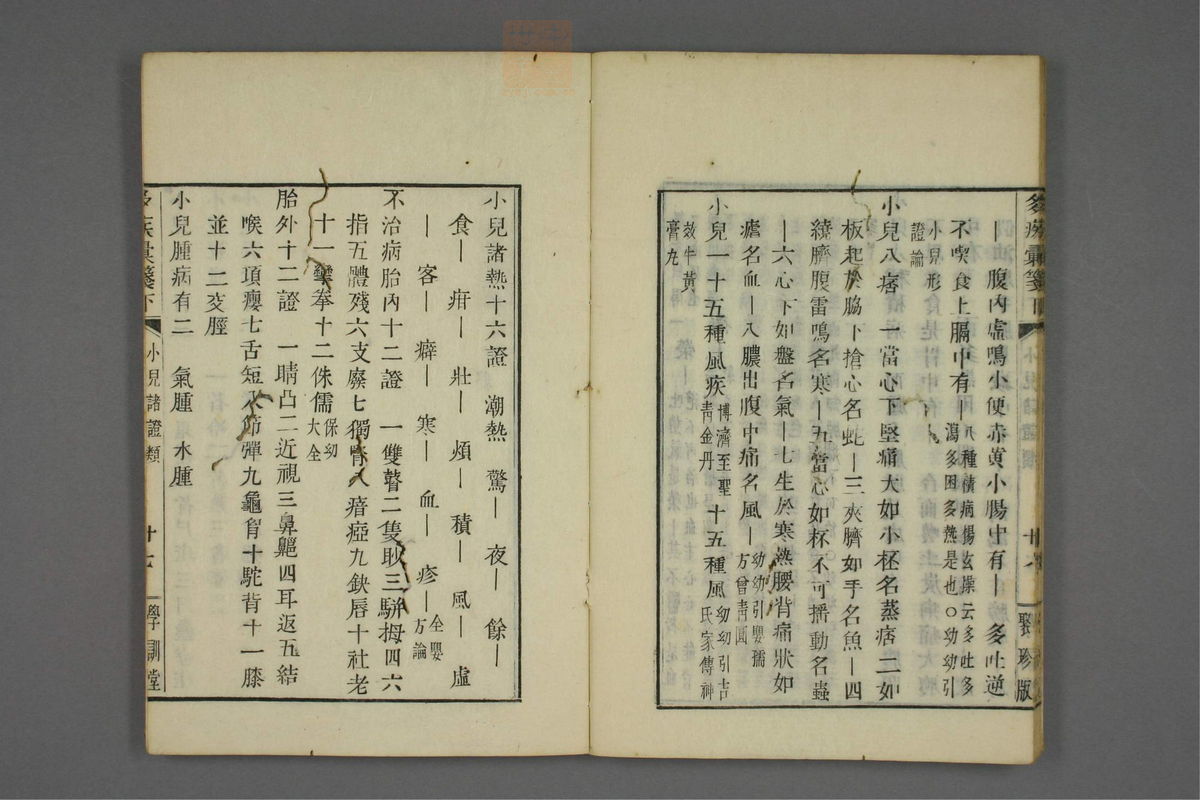 ｜腹內虛鳴小便赤黃小腸中有｜多吐逆
不喫食上膈中有｜八種積病楊玄操云多吐多
瀉多困多熱是也〇幼幼引
小兒形
證論
小兒八痞　一當心下堅痛大如小杯名蒸痞二如
板起於脇下搶心名蛇｜三夾臍如手名魚｜四
繞臍腹雷鳴名寒｜五當心如杯不可搖動名蟲
｜六心下如盤名氣｜七生於寒熱腰背痛狀如
瘧名血｜八膿出腹中痛名風｜幼幼引嬰孺
方曾青圓
小兒一十五種風疾博濟至聖
青金丹十五種風幼幼引吉
氏家傳神
效牛黃
膏丸
聚珍版
小兒諸熱十六證　潮熱　驚｜　夜｜　餘｜
食｜　疳｜　壯｜　煩｜　積｜　風｜　虛
｜　客｜　癖｜　寒｜　血｜　疹｜全嬰
方論
不治病胎內十二證　一雙瞽二隻眇三駢拇四六
指五體殘六支廢七獨腎八瘖瘂九缺唇十社老
十一攣拳十二侏儒保幼
大全
胎外十二證　一睛凸二近視三鼻齆四耳返五結
喉六項癭七舌短八節彈九龜胷十駝背十一膝
並十二交脛
小兒腫病有二　氣腫　水腫
多疾彙箋下
小兒諸證類
學訓堂